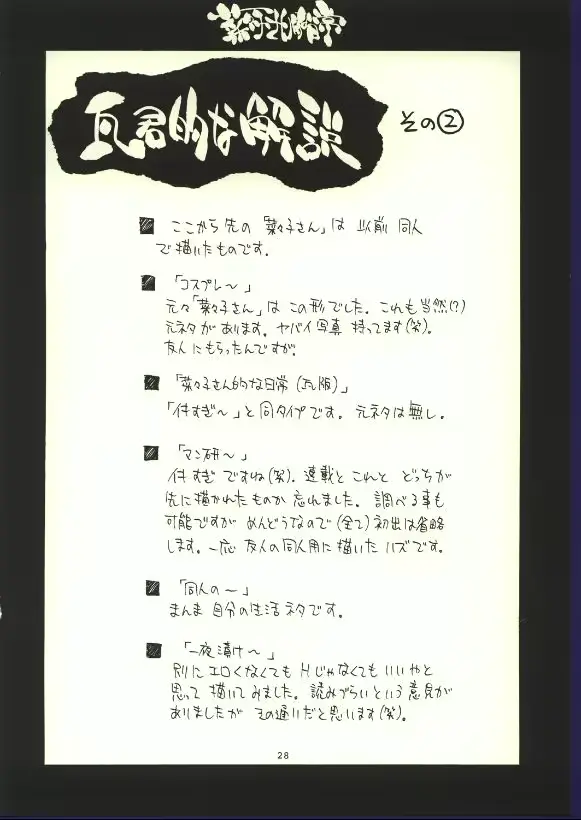 瓦君的な解説 その②
■ ここから先の「菜々子さん」は 以前 同人
で描いたものです。
■ 「コスプレ〜」
元々「菜々子さん」は この形でした。これも当然(?)
元ネタがあります。ヤバイ写真 持ってます(笑)。
友人にもらったんですが。
■ 「菜々子さん的な日常(瓦版)」
「付すぎ〜」と同タイプです。元ネタは無し。
■ 「マン研〜」
付すぎ ですね(笑)。連載と これと どっちが
先に描かれたものか 忘れました。調べる事も
可能ですが めんどうなので(全て)初出は省略
します。一応 友人の同人用に描いた ハズです。
■ 「同人の〜」
まんま 自分の生活ネタです。
■ 「一夜漬け〜」
別に エロくなくても Hじゃなくても いいやと
思って 描いて みました。読みづらいという意見が
ありましたが その通りだと思います(笑)。
28